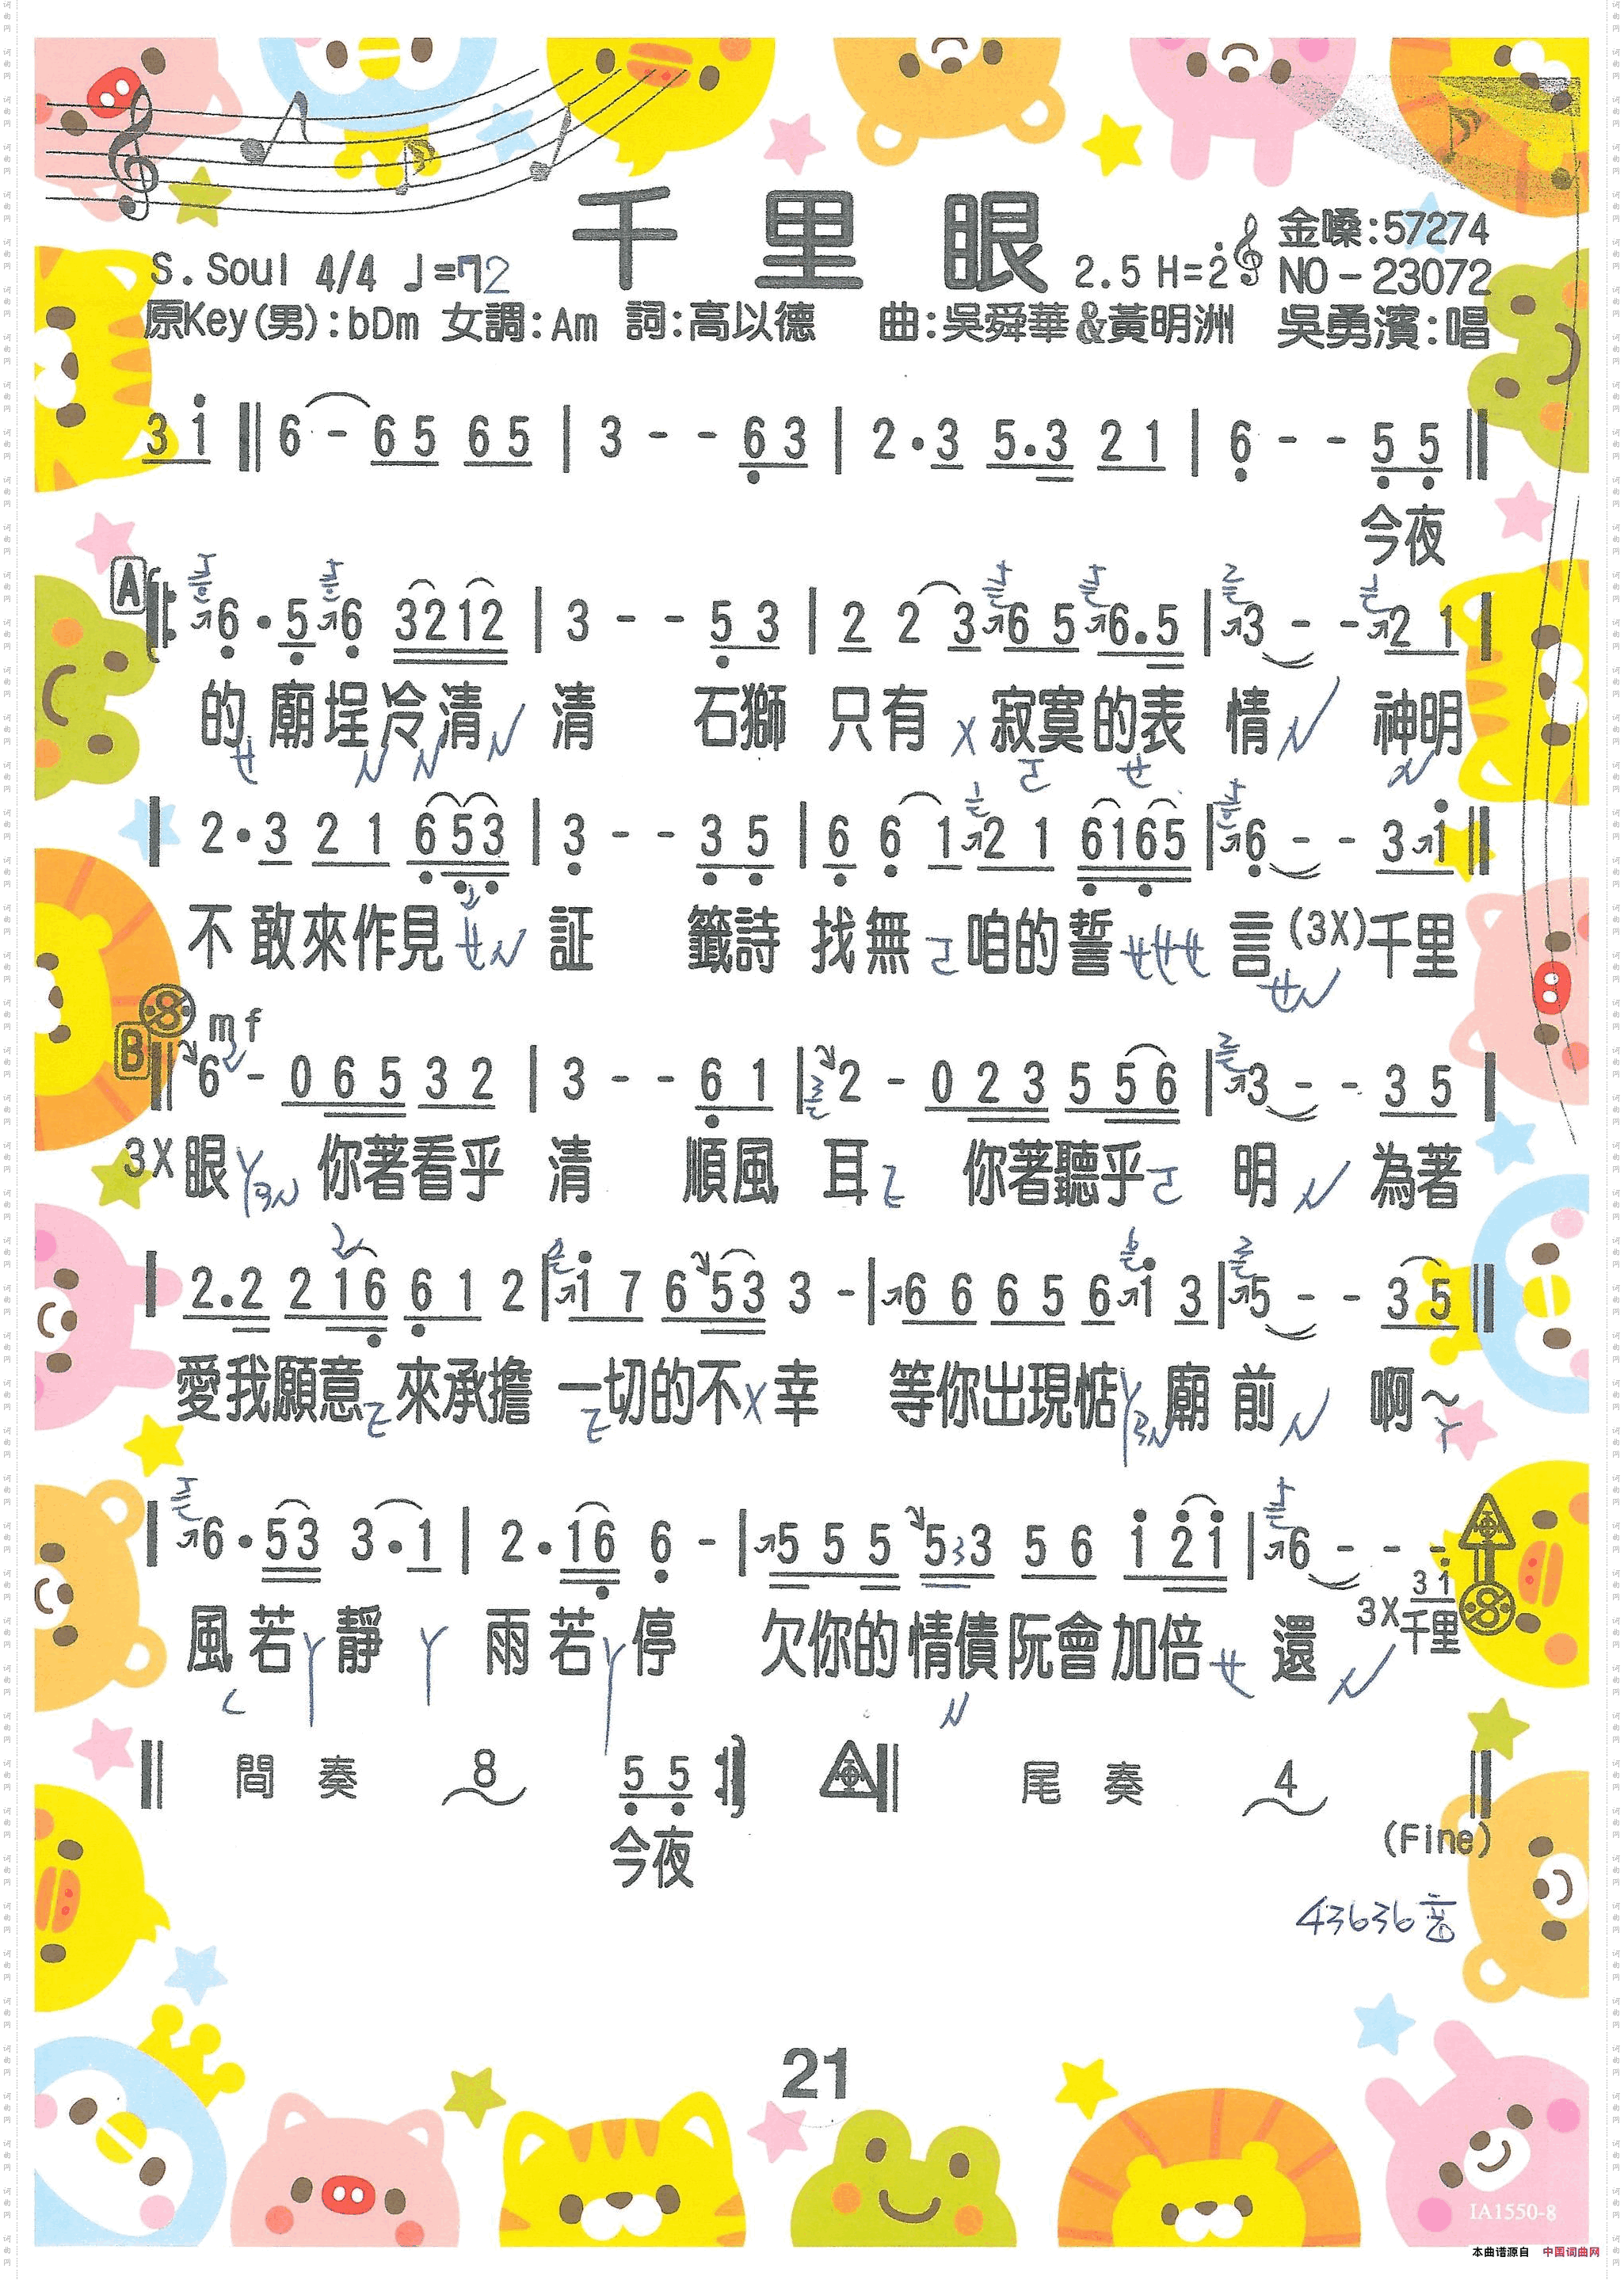 千里眼
金嗓:57274
S. Soul 4/4 ♩=72
2.5 H=2̇
NO-23072
原Key(男):bDm 女調:Am 詞:高以德 曲:吳舜華&黃明洲 吳勇濱:唱
3 1̇ ‖ 6 - 6 5 6 5 | 3 - - 6̣ 3 | 2・3 5.3 2 1 | 6̣ - - 5̣ 5̣ ‖
今夜
A
6̣・5̣ 6̣ 3212 | 3 - - 5̣ 3 | 2 2 3 6 5 6.5 | 3 - - 2 1 |
的廟埕冷清 清 石獅 只有 寂寞的表 情 神明
| 2・3 2 1 6̣ 5̣3̣ | 3̣ - - 3̣ 5̣ | 6̣ 6̣ 1 2 1 6̣16̣5 | 6̣ - - 3 1̇ ‖
不敢來作見 証 籤詩 找無 咱的誓 言 (3X)千里
B mf
‖ 6 - 0 6 5 3 2 | 3 - - 6̣ 1 | 2 - 0 2 3 5 5 6 | 3 - - 3 5 |
3X眼 你著看乎 清 順風 耳 你著聽乎 明 為著
| 2.2 2 1 6̣ 6̣ 1 2 | 1̇ 7 6 5 3 3 - | 6 6 6 5 6 1̇ 3 | 5 - - 3 5 ‖
愛我願意 來承擔 一切的不 幸 等你出現惦 廟 前 啊~
| 6・5 3 3・1 | 2・1 6̣ 6̣ - | 5 5 5 5 3 3 5 6 1̇ 2̇ 1̇ | 6 - - -
3 1̇
風若 靜 雨若 停 欠你的情債阮會加倍 還 3X千里
‖ 間奏 8 5̣ 5̣ ‖ 尾奏 4 ‖
今夜
(Fine)
43636音
21
IA1550-8
本曲谱源自 中国词曲网